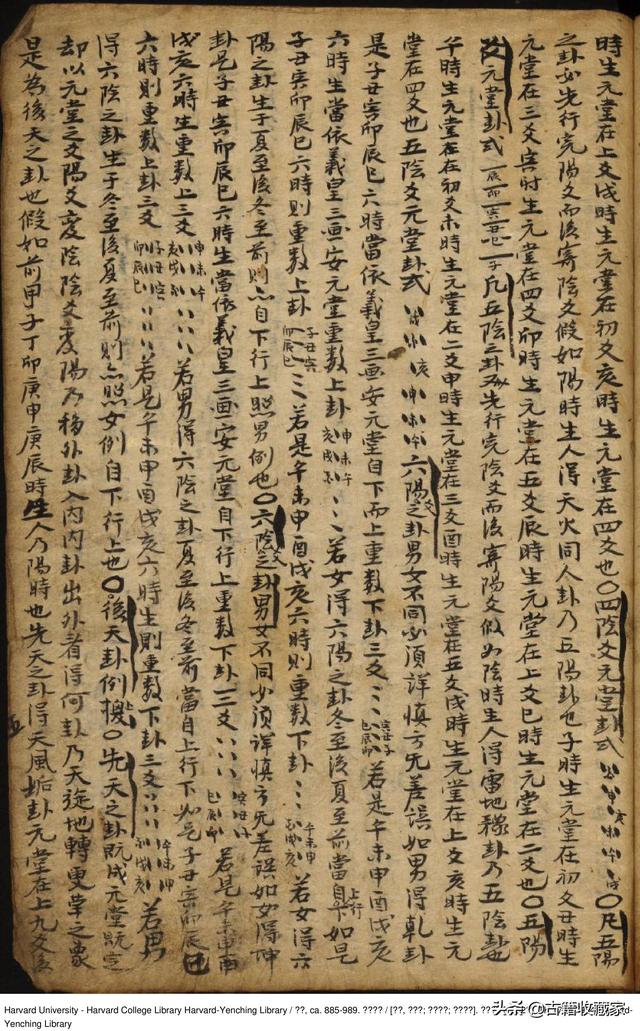 時生元堂在上爻戌時生元堂在初爻亥時生元堂在四爻也〇四陰爻元堂卦式 〇凡五陽
之卦必先行完陽爻而後寄陰爻假如陽時生人得天火同人卦乃五陽卦也子時生元堂在初爻丑時生
元堂在三爻寅時生元堂在四爻卯時生元堂在五爻辰時生元堂在上爻巳時生元堂在二爻也〇五陽
爻元堂卦式 凡五陰之卦必先行完陰爻而後寄陽爻假如陰時生人得雷地豫卦乃五陰卦也
午時生元堂在初爻未時生元堂在二爻申時生元堂在三爻酉時生元堂在五爻戌時生元堂在上爻亥時生元
堂在四爻也五陰爻元堂卦式 戌 酉 亥 申 未 午 六陽之卦男女不同必須詳慎方无差誤如男得乾卦
是子丑寅卯辰巳六時當依義皇三画安元堂自下而上重数下卦三爻 若是午未申酉戌亥
六時生當依義皇三画安元堂重数上卦 若女得六陽之卦冬至後夏至前當自上行下如是
子丑寅卯辰巳六時則重数上卦 若是午未申酉戌亥六時則重数下卦 若女得六
陽之卦生于夏至後冬至前則亦自下行上照男例也〇六陰爻之卦男女不同必須詳慎方无差誤如女得坤
卦是子丑寅卯辰巳六時生當依義皇三画安元堂自下行上重数下卦三爻 若是午未申酉
戌亥六時生重数上三爻 若男得六陰之卦夏至後冬至前當自上行下如是子丑寅卯辰巳
六時則重数上卦三爻 若是午未申酉戌亥六時生則重数下卦三爻 若男
得六陰之卦生于冬至後夏至前則亦照女例自下行上也〇後天卦例 〇先天之卦既成元堂既定
却以元堂之爻陽爻変陰陰爻変陽乃移外卦入内内卦出外者得何卦乃天旋地轉更革之象
是為後天之卦也假如前甲子丁卯庚申庚辰時生人乃陽時也先天之卦得天風姤卦元堂在上九爻後
Harvard University - Harvard College Library Harvard-Yenching Library / ??, ca. 885-989. ???? / [??, ???; ????; ????]. ??
Yenching Library
头条@古籍收藏家